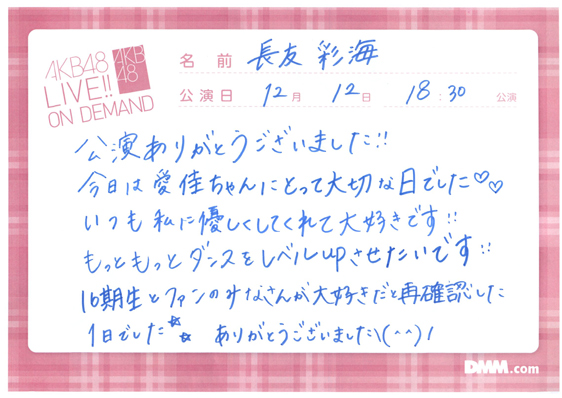 AKB48
LIVE!!
ON DEMAND
AKB
48
名前 長友 彩海
公演日 12月 12日 18:30 公演
公演ありがとうございました!!
今日は愛佳ちゃんにとって大切な日でした♡♡
いつも私に優しくしてくれて大好きです!!
もっともっとダンスをレベルupさせたいです!!
16期生とファンのみなさんが大好きだと再確認した
1日でした☆☆ ありがとうございました\(^^)/
DMM.com